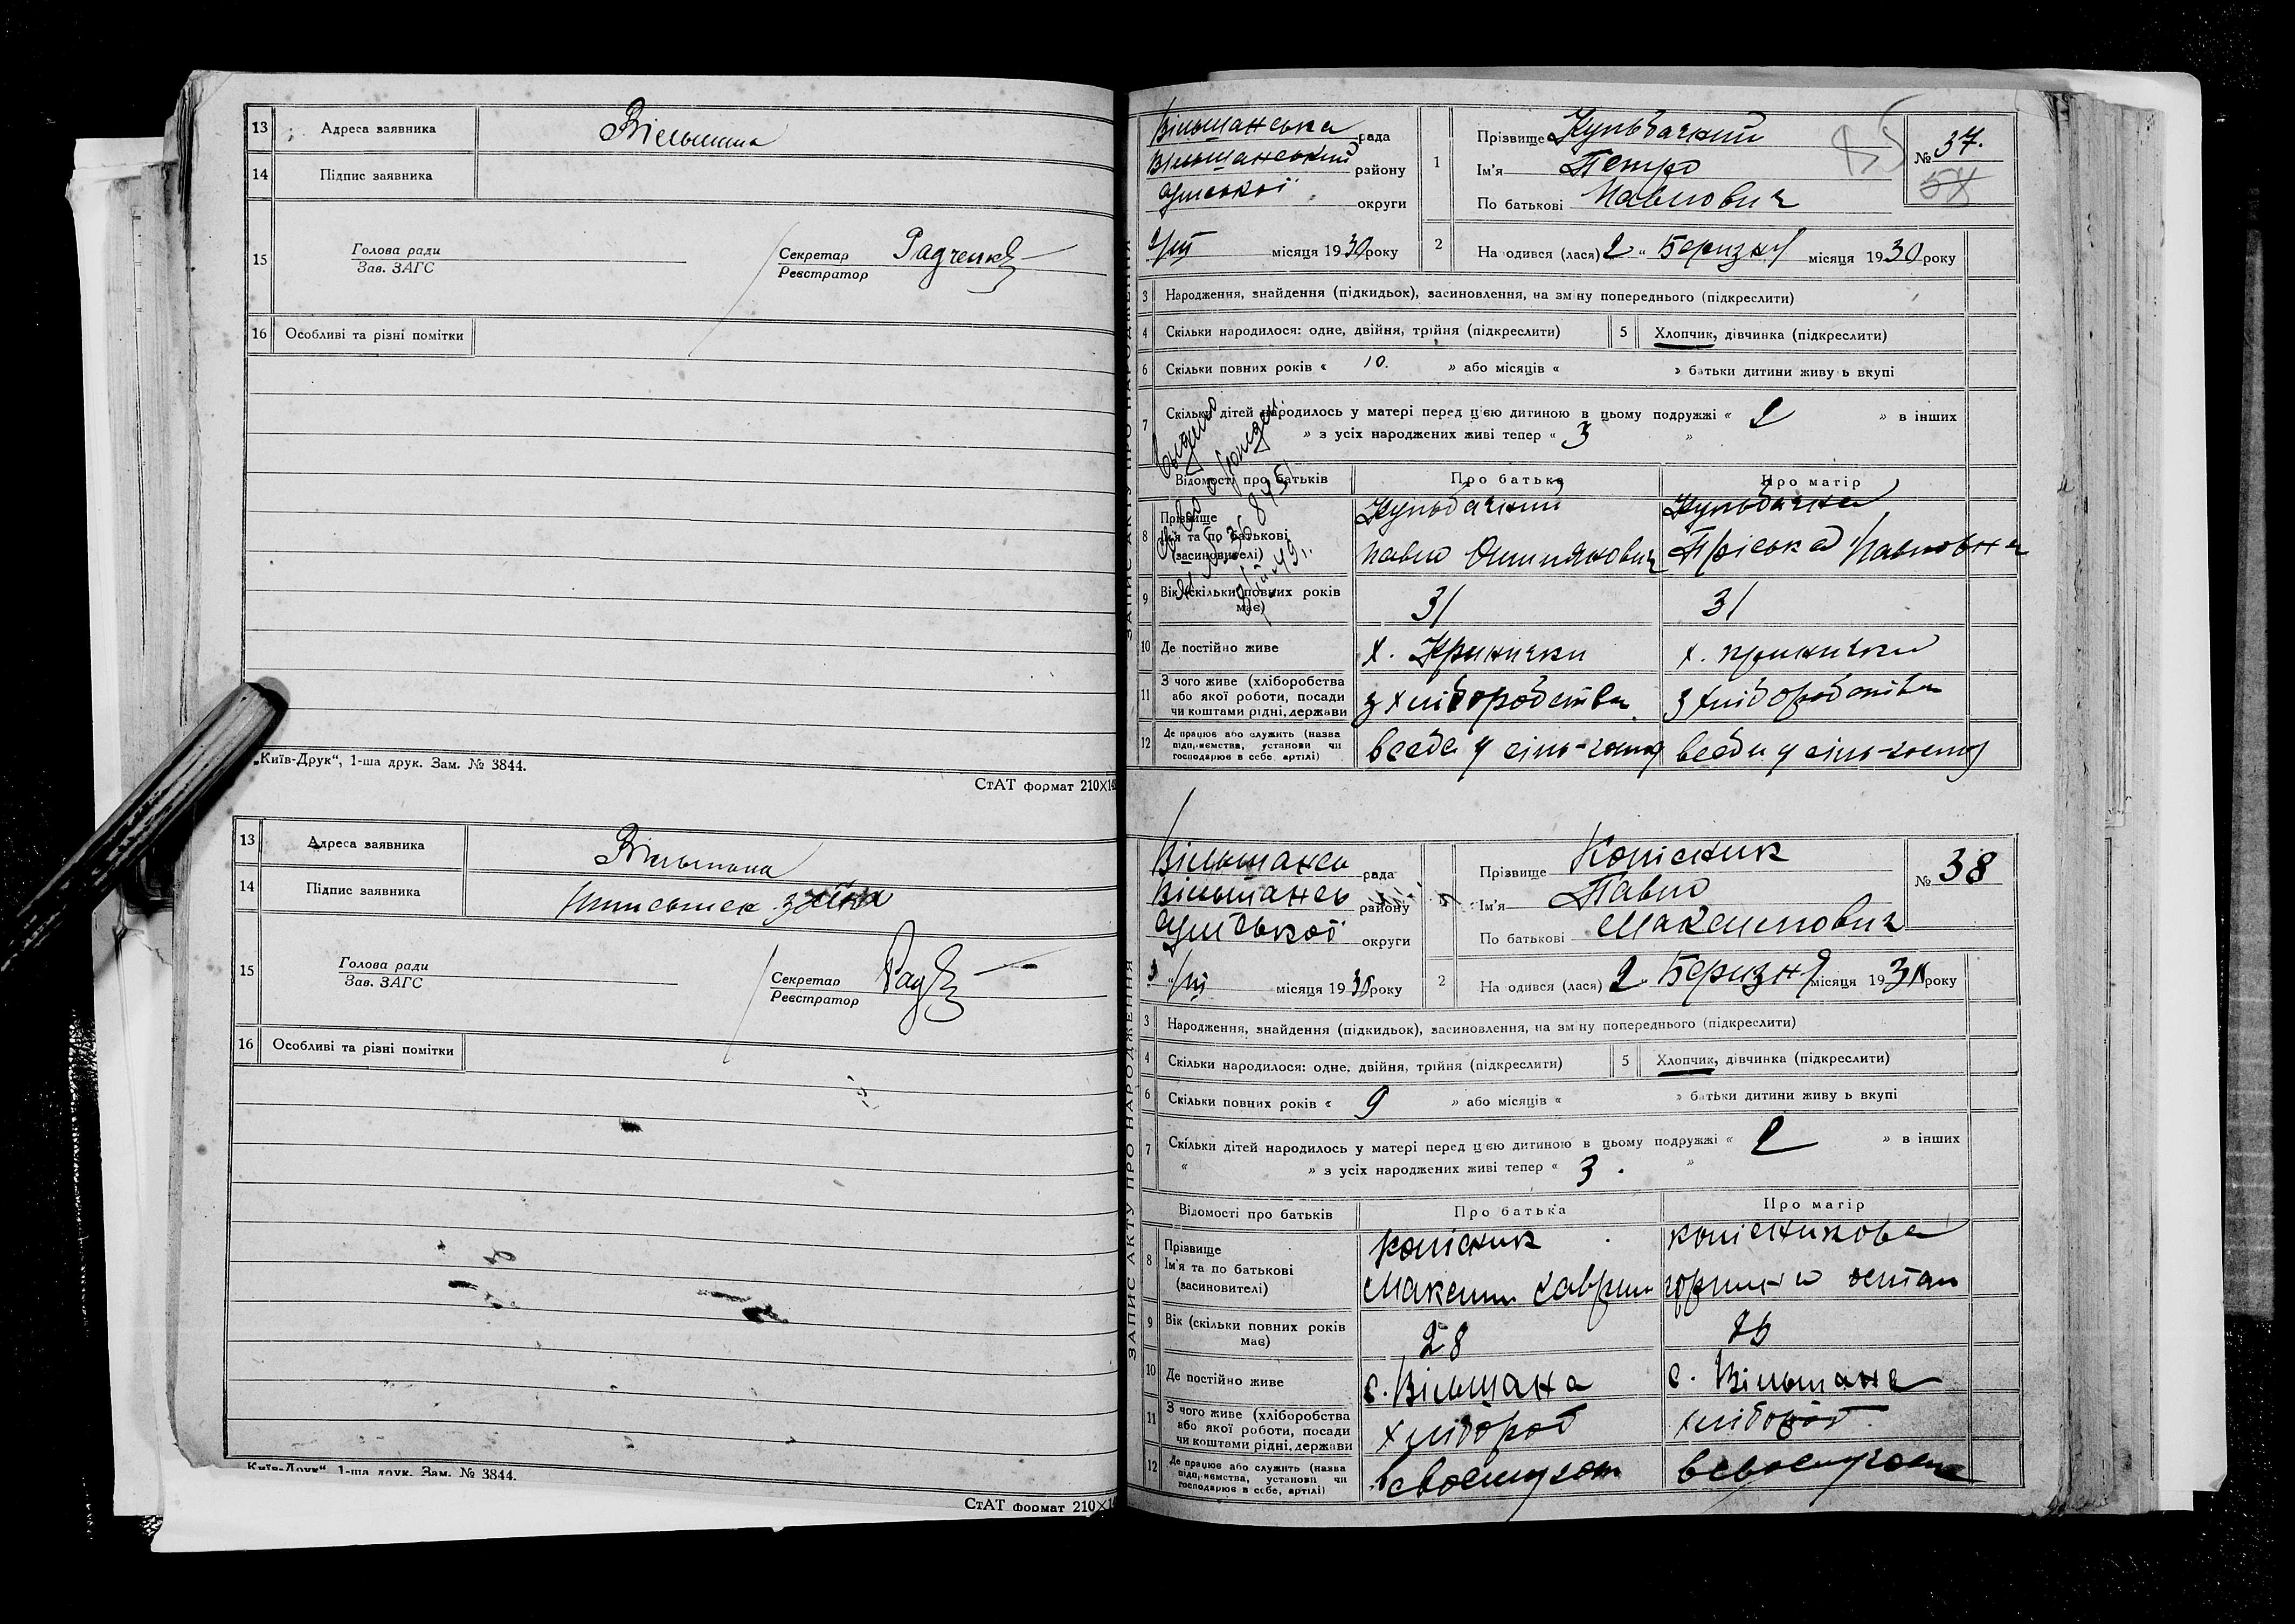 13 Адреса заявника Вільшана
14 Підпис заявника
15 Голова ради
Зав. ЗАГС
Секретар Радченко
Реєстратор
16 Особливі та різні помітки
„Київ-Друк“, 1-ша друк. Зам. № 3844.
СтАТ формат 210×14
13 Адреса заявника Вільшана
14 Підпис заявника
15 Голова ради
Зав. ЗАГС
Секретар Рад
Реєстратор
16 Особливі та різні помітки
Київ-Друк“, 1-ша друк. Зам. № 3844.
СтАТ формат 210×14
ЗАПИС АКТУ ПРО НАРОДЖЕННЯ
Вільшанська рада
Вільшанський району
Сумської округи
2/III місяця 1930 року
1 Прізвище Кульбачний
Ім'я Петро
По батькові Павлович
№ 37.
54
2 На одився (лася) 2 " Березня місяця 1930 року
3 Народження, знайдення (підкидьок), засиновлення, на зміну попереднього (підкреслити)
4 Скільки народилося: одне, двійня, трійня (підкреслити) 5 Хлопчик, дівчинка (підкреслити)
6 Скільки повних років « 10. » або місяців « » батьки дитини живу ь вкупі
7 Скільки дітей народилось у матері перед цією дитиною в цьому подружжі « 2 » в інших
» з усіх народжених живі тепер « 3 »
Відомості про батьків Про батька Про матір
8 Прізвище Кульбачний Кульбачна
Ім'я та по батькові Павло Пріська Павловна
(засиновителі)
9 Вік (скільки повних років має) 31 31
10 Де постійно живе х. Кринички х. Кринички
11 З чого живе (хліборобства або якої роботи, посади чи коштами рідні, держави з хліборобства з хліборобства
12 Де працює або служить (назва підприємства, установи чи господарює в себе, артілі) в себе у сіль-госп в себе у сіль-госп
ЗАПИС АКТУ ПРО НАРОДЖЕННЯ
Вільшансь рада
Вільшансь району
Сумської округи
3 "/III місяця 1930 року
1 Прізвище Колісник
Ім'я Павло
По батькові Максимович
№ 38
2 На одився (лася) 2. Березня місяця 1930 року
3 Народження, знайдення (підкидьок), засиновлення, на зміну попереднього (підкреслити)
4 Скільки народилося: одне, двійня, трійня (підкреслити) 5 Хлопчик, дівчинка (підкреслити)
6 Скільки повних років « 9 » або місяців « » батьки дитини живу ь вкупі
7 Скільки дітей народилось у матері перед цією дитиною в цьому подружжі « 2 » в інших
« » з усіх народжених живі тепер « 3. »
Відомості про батьків Про батька Про матір
8 Прізвище Колісник Колісникова
Ім'я та по батькові Максим Гаврил Остап
(засиновителі)
9 Вік (скільки повних років має) 28
10 Де постійно живе с. Вільшана с. Вільшана
11 З чого живе (хліборобства або якої роботи, посади чи коштами рідні, держави хлібороб хлібороб.
12 Де працює або служить (назва підприємства, установи чи господарює в себе, артілі) в своєму госп в своєму госп